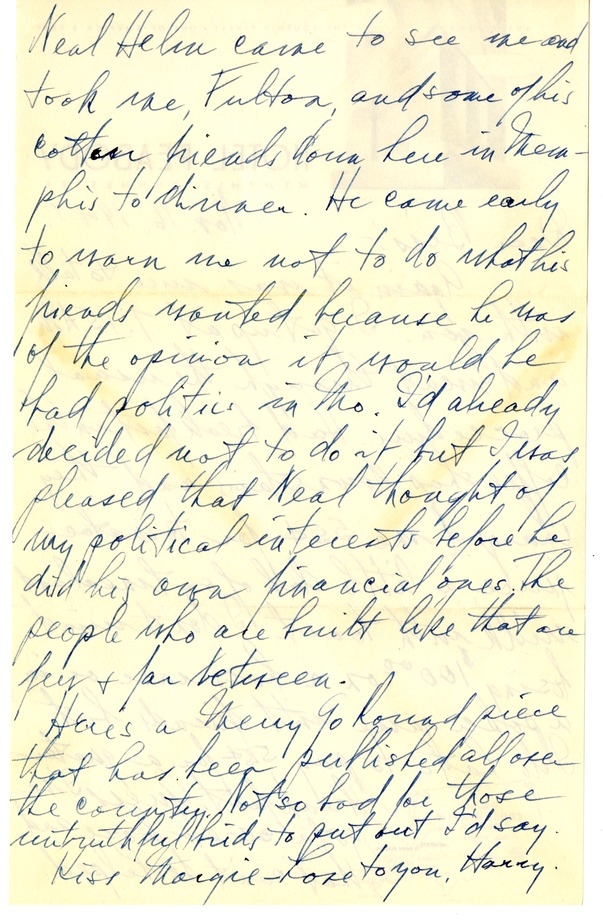 Neal Helm came to see me and
took me, Fulton, and some of his
cotton friends down here in Mem-
phis to dinner. He came early
to warn me not to do what his
friends wanted because he was
of the opinion it would be
bad politics in Mo. I'd already
decided not to do it but I was
pleased that Neal thought of
my political interests before he
did his own financial ones. The
people who are built like that are
few & far between.
Here's a Merry Go Round piece
that has been published all over
the country. Not so bad for those
untruthful birds to put out I'd say.
Kiss Margie - Love to you, Harry.